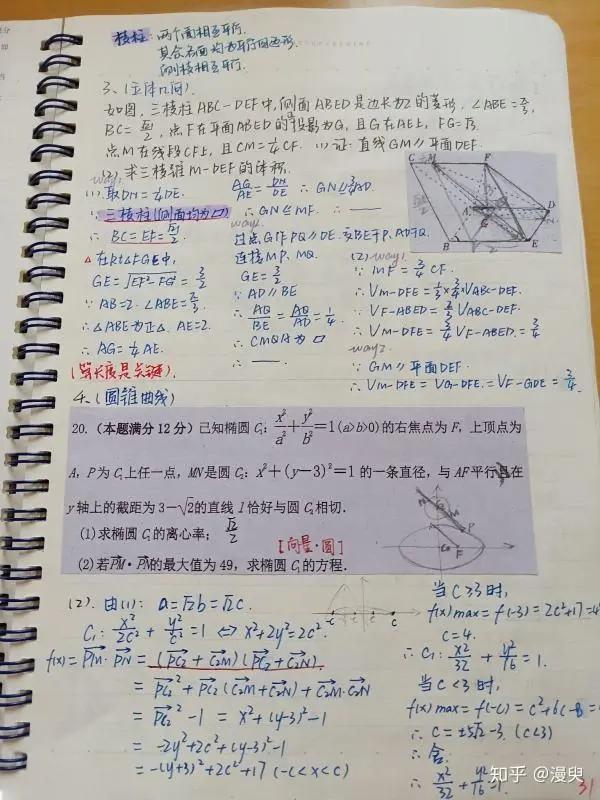 棱柱：两个面相互平行.
其余各面均为平行四边形.
侧棱相互平行.
3、(立体几何).
如图, 三棱柱 ABC-DEF中, 侧面ABED是边长为2的菱形, ∠ABE=π/3,
BC=√21/2, 点F在平面ABED的投影为G, 且G在AE上, FG=√3.
点M在线段CF上, 且CM=1/4 CF. (1)证: 直线GM∥平面DEF.
(2) 求三棱锥 M-DEF的体积.
way1
(1).取DN=1/4 DE.
∵三棱柱(侧面均为▱)
∴BC=EF=√21/2.
△在Rt△FGE中,
GE=√(EF²-FG²)=3/2
∵AB=2. ∠ABE=π/3.
∴△ABE为正△. AE=2.
∴AG=1/4 AE.
(算长度是关键).
AG/AE=DN/DE ∴GN≌3/4 AD.
∴GN≌MF. ∴——
way2
过点G作PQ∥DE.交BE于P、AD于Q.
连接MP、MQ.
GE=3/2
∵AD∥BE
∴AQ/BE=AQ/AD=1/4.
∴CMQA为▱
∴——.
(2) way1.
∵MF=3/4 CF.
∴V M-DFE=1/3×3/4 V ABC-DEF.
∵V F-ABED=2/3 V ABC-DEF.
∴V M-DFE=3/4 V F-ABED.=3/4
way2.
∵GM∥平面DEF.
∴V M-DFE=V G-DFE.=V F-GDE=3/4.
C M F
A D
G
B E
4、(圆锥曲线)
20.(本题满分12分)已知椭圆C₁: x²/a²+y²/b²=1(a>b>0)的右焦点为F, 上顶点为
A, P为C₁上任一点, MN是圆C₂: x²+(y-3)²=1的一条直径, 与AF平行且在
y轴上的截距为3-√2的直线l恰好与圆C₂相切.
(1)求椭圆C₁的离心率; √2/2
[向量·圆]
(2)若PM·PN的最大值为49, 求椭圆C₁的方程.
(2). 由(1): a=√2b=√2c.
C₁: x²/2c²+y²/c²=1 ⇔ x²+2y²=2c².
f(x)=PM·PN=(PC₂+C₂M)(PC₂+C₂N)
=PC₂²+PC₂(C₂M+C₂N)+C₂M·C₂N
=PC₂²-1=x²+(y-3)²-1
=-2y²+2c²+(y-3)²-1
=-(y+3)²+2c²+17 (-c<x<c)
当C≥3时,
f(x)max=f(-3)=2c²+17=4
c=4.
∴C₁: x²/32+y²/16=1.
当C<3时,
f(x)max=f(-c)=c²+6c-8=
∴C=±5√2-3. (c<3)
∴舍.
∴x²/32+y²/16=1.
31
知乎 @漫臾